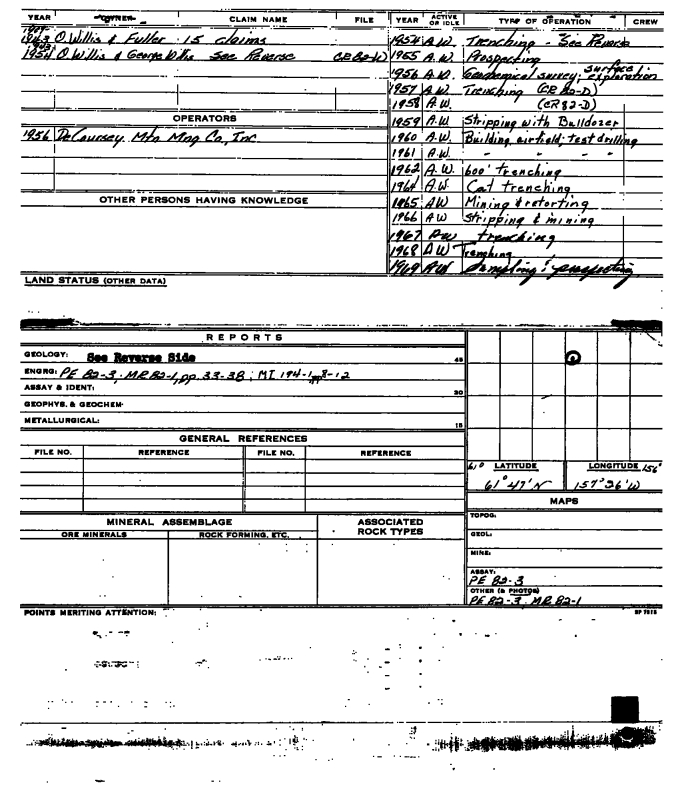 YEAR OWNER CLAIM NAME FILE
1943 O. Willis & Fuller 15 claims
1954 O. Willis & George Willis See Reverse
OPERATORS
1956 DeCoursey Mtn Mng Co., Inc
OTHER PERSONS HAVING KNOWLEDGE
LAND STATUS (OTHER DATA)
YEAR ACTIVE OR IDLE TYPE OF OPERATION CREW
1954 A.W. Trenching - See Reverse
1955 A.W. Prospecting
1956 A.W. Geochemical survey; surface exploration
1957 A.W. Trenching (CR 82-D)
1958 A.W. (CR 82-D)
1959 A.W. Stripping with Bulldozer
1960 A.W. Building airfield; test drilling
1961 A.W. " " "
1962 A.W. 600' trenching
1964 A.W. Cat trenching
1965 AW Mining & retorting
1966 AW Stripping & mining
1967 AW trenching
1968 AW Trenching
1969 AW Sampling & prospecting
REPORTS
GEOLOGY: See Reverse Side 45
ENGRG: PE 82-3; MR 82-1, pp. 33-38; MI 194-1, pp 8-12
ASSAY & IDENT: 30
GEOPHYS. & GEOCHEM:
METALLURGICAL: 15
GENERAL REFERENCES
FILE NO. REFERENCE FILE NO. REFERENCE
MINERAL ASSEMBLAGE ASSOCIATED ROCK TYPES
ORE MINERALS ROCK FORMING, ETC.
61° LATITUDE LONGITUDE 156°
61° 47' N 157° 36' W
MAPS
TOPOG:
GEOL:
MINE:
ASSAY:
PE 82-3
OTHER (& PHOTOS)
PE 82-3, MR 82-1
POINTS MERITING ATTENTION: